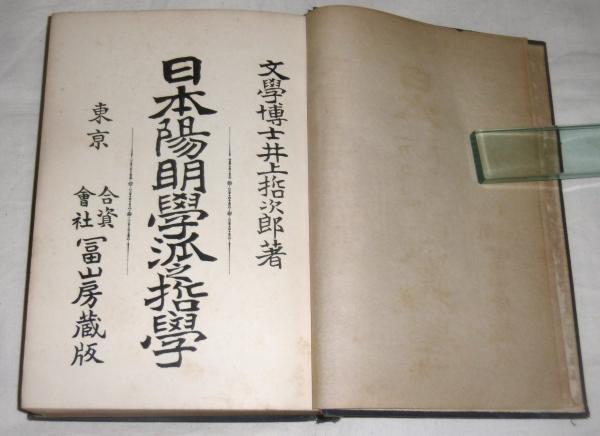 文學博士井上哲次郎著
日本陽明學派之哲學
東京
合資會社冨山房蔵版